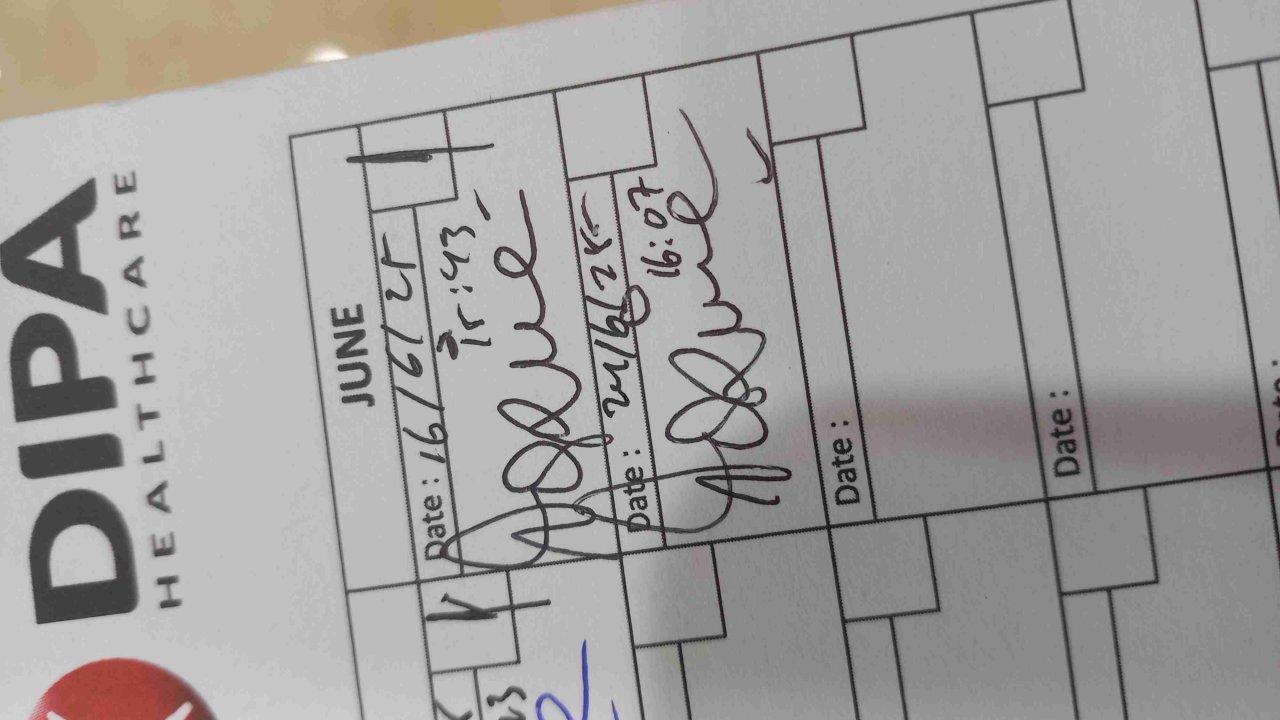 DIPA
HEALTHCARE
JUNE
Date : 16/6/25
15:43
Date : 24/6/25
16:07
Date :
Date :